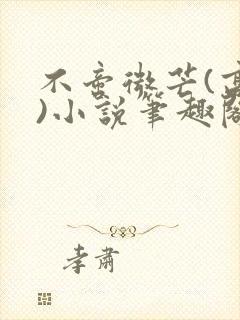 不啻微芒(高
)小說筆趣閣
李肅